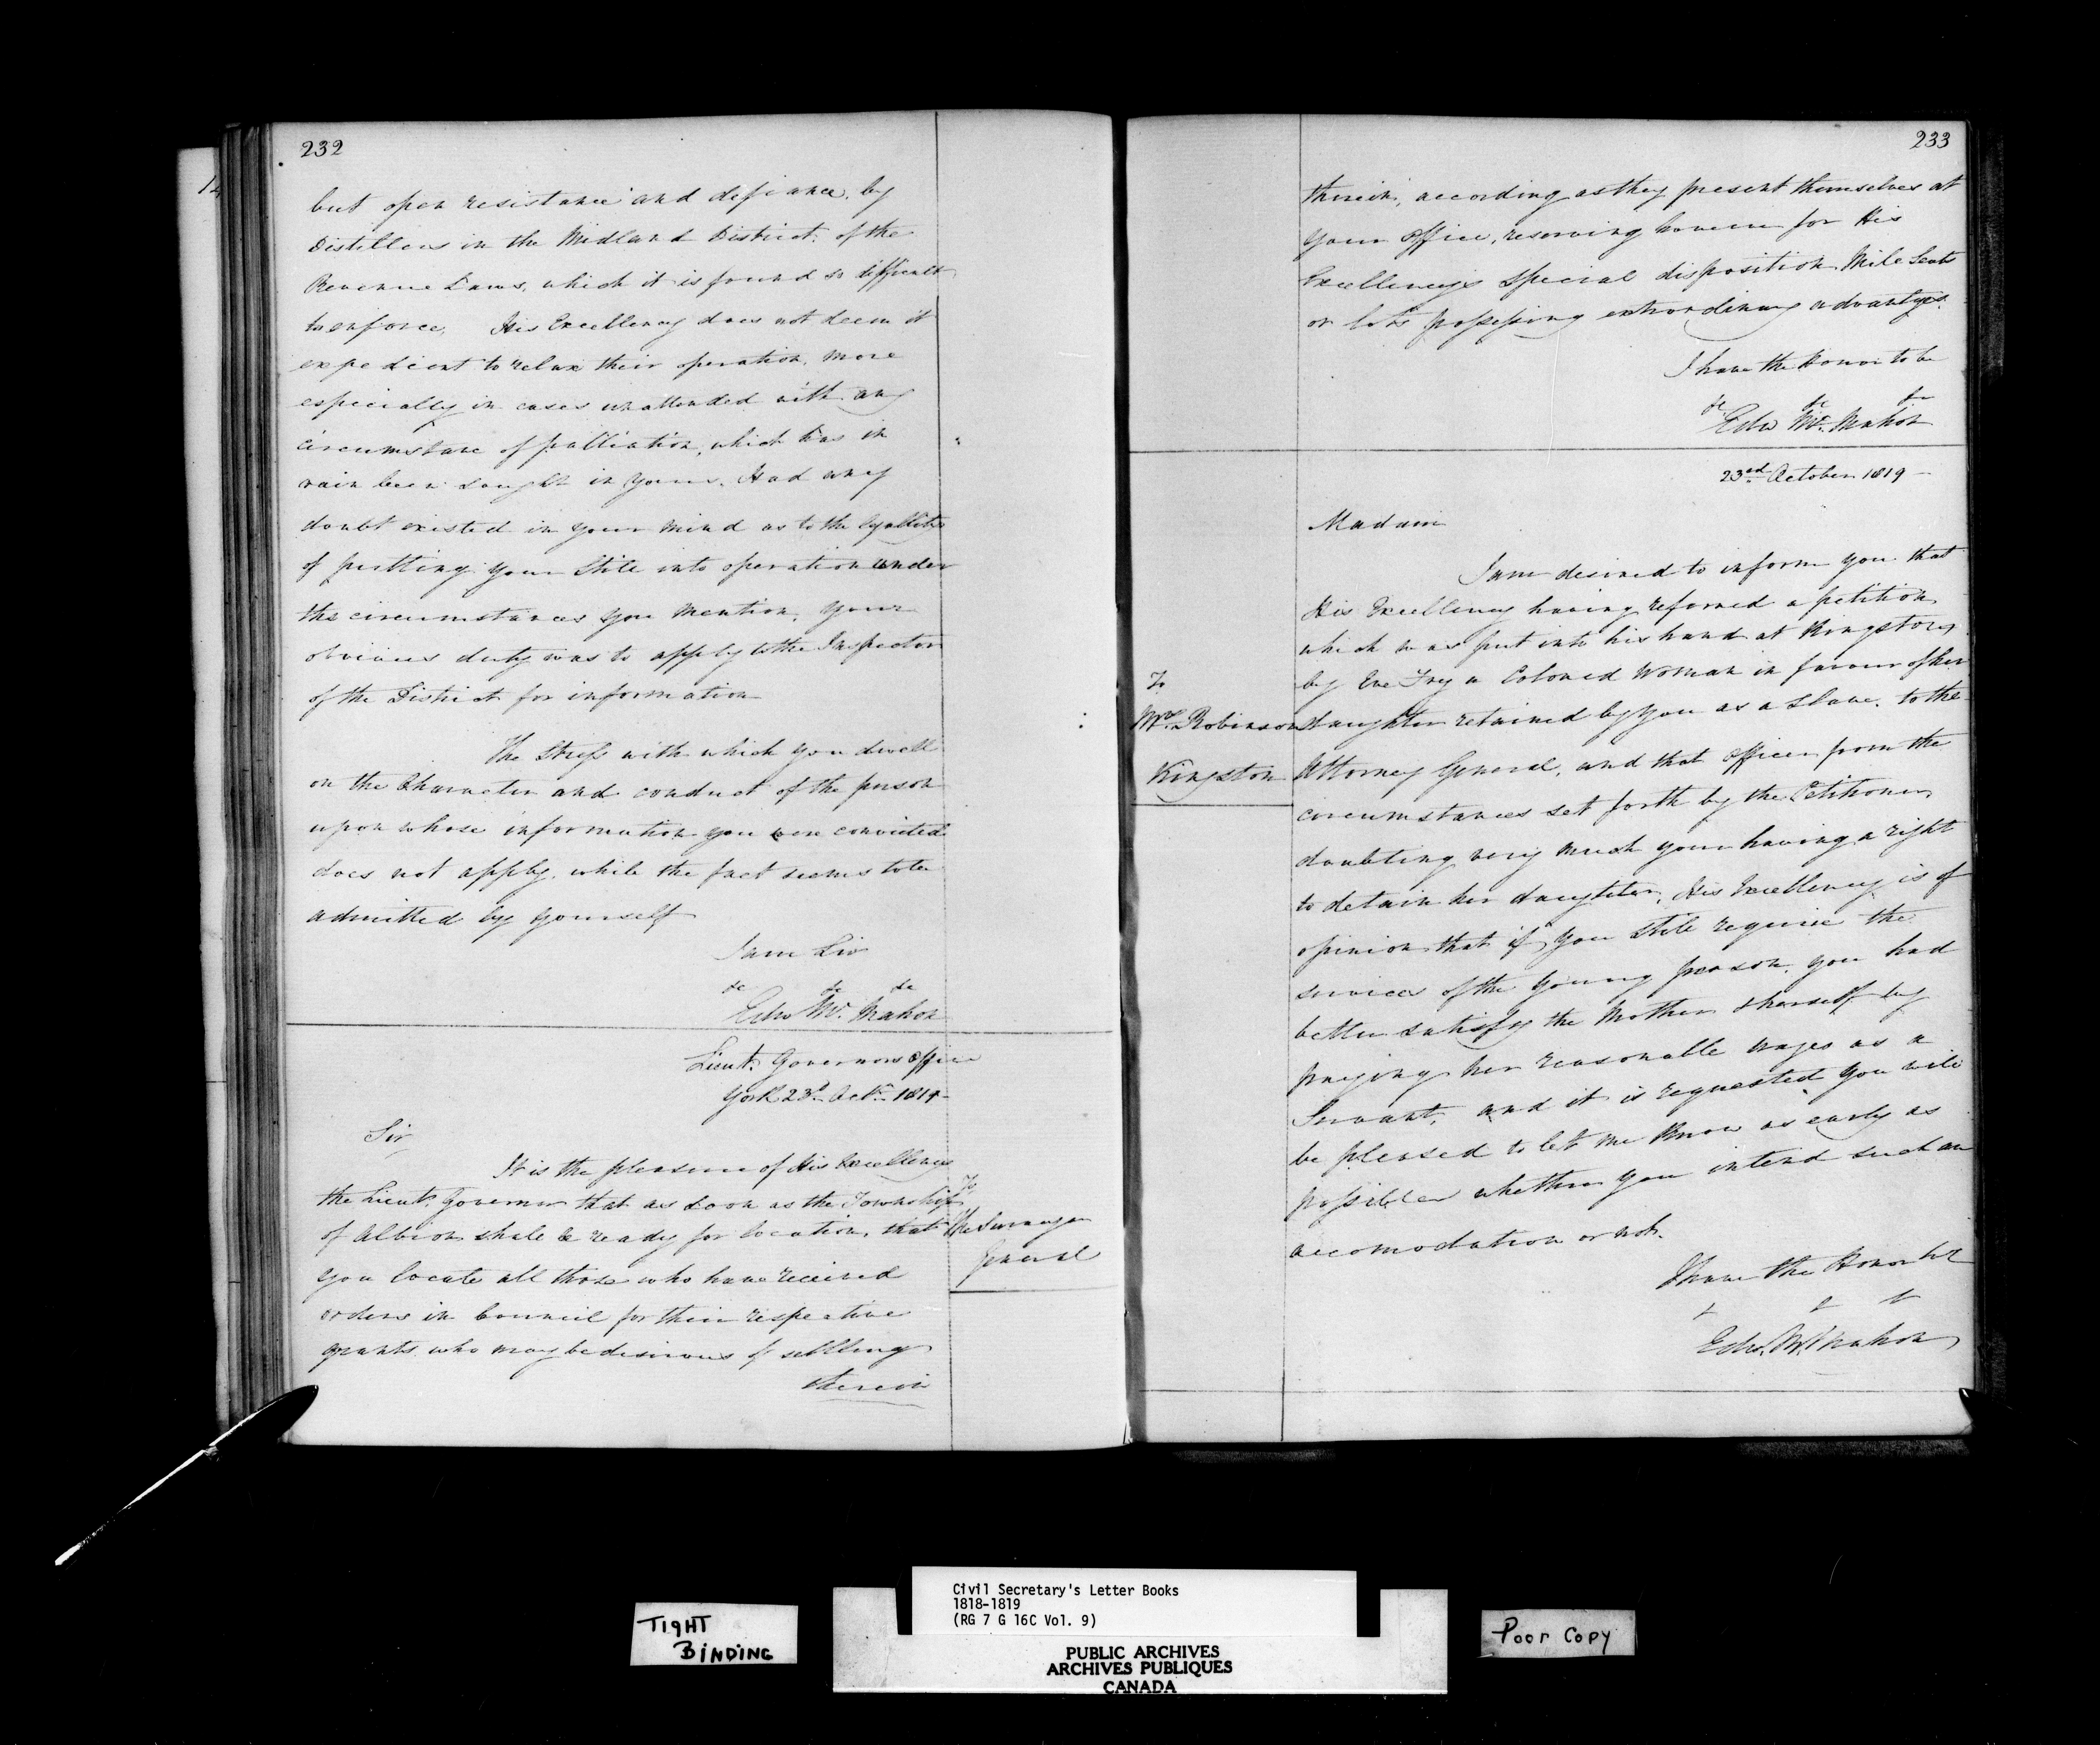 232
but open resistance and defiance, by
Distillers in the Midland District, of the
Revenue Laws, which it is found so difficult
to enforce, His Excellency does not deem it
expedient to relax their operation, more
especially in cases unattended with any
circumstance of palliation, which has in
vain been sought in yours. Had any
doubt existed in your mind as to the legallity
of putting your Still into operation under
the circumstances you mention, your
obvious duty was to apply to the Inspector
of the District for information
The Stress with which you dwell
on the Character and conduct of the person
upon whose information you were convicted
does not apply, while the fact seems to be
admitted by yourself
I am Sir
&c &c &c
Edw Mc. Mahon
Lieut. Governors Office
York 23d Octr. 1819
Sir
It is the pleasure of His Excellency
the Lieut. Governor that as soon as the Township
of Albion shall be ready for location, that
you locate all those who have received
orders in Council for their respective
grants who may be desirous of settling
therein
To
the Surveyor
General
233
therein, according as they present themselves at
your Office, reserving however for His
Excellency's special disposition Mile Seats
or lots possessing extraordinary advantages.
I have the Honor to be
&c &c &c
Edw Mc. Mahon
23rd October 1819
Madam
I am desired to inform you that
His Excellency having referred a petition
which was put into his hand at Kingston
by Eve Frey a Colored Woman in favour of her
daughter retained by you as a Slave, to the
Attorney General, and that Officer from the
circumstances set forth by the Petitioner
doubting very much your having a right
to detain her daughter, His Excellency is of
opinion that if you still require the
services of the young person, you had
better satisfy the Mother & herself by
paying her reasonable wages as a
Servant, and it is requested you will
be pleased to let me know as early as
possible whether you intend such an
accomodation or not.
I have the Honor to be
& & &
Edw. Mc. Mahon
To
Mrs. Robinson
Kingston
TIGHT
BINDING
Civil Secretary's Letter Books
1818-1819
(RG 7 G 16C Vol. 9)
PUBLIC ARCHIVES
ARCHIVES PUBLIQUES
CANADA
Poor Copy